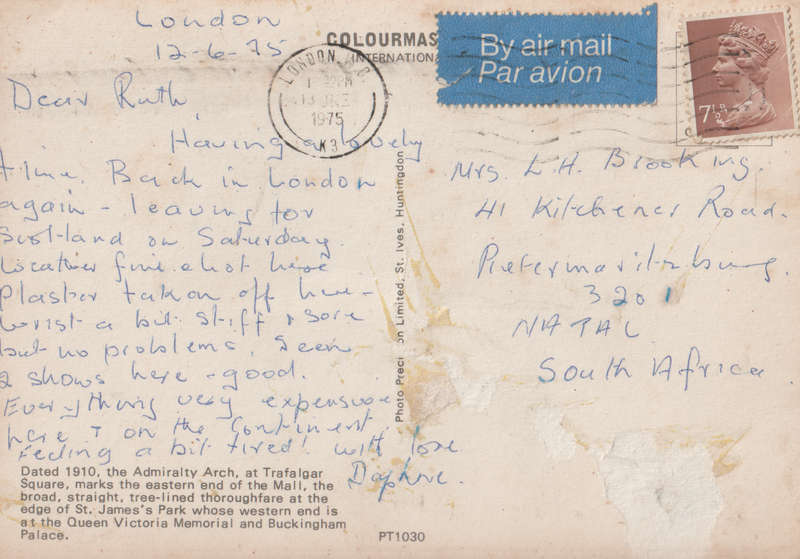 London
12-6-75
Dear Ruth
Having a lovely
time. Back in London
again - leaving for
Scotland on Saturday.
Weather fine & hot here
Plaster taken off here -
wrist a bit stiff & sore
but no problems. Seen
2 shows here - good.
Everything very expensive
here & on the Continent.
Feeling a bit tired! With love
Daphne.
Dated 1910, the Admiralty Arch, at Trafalgar
Square, marks the eastern end of the Mall, the
broad, straight, tree-lined thoroughfare at the
edge of St. James's Park whose western end is
at the Queen Victoria Memorial and Buckingham
Palace.
PT1030
COLOURMAS
INTERNATIONA
LONDON
13 JNE
1975
K3
By air mail
Par avion
7½P
Photo Preci on Limited, St. Ives, Huntingdon
Mrs. L.H. Brooking.
41 Kitchener Road.
Pietermaritzburg.
3201
NATAL
South Africa